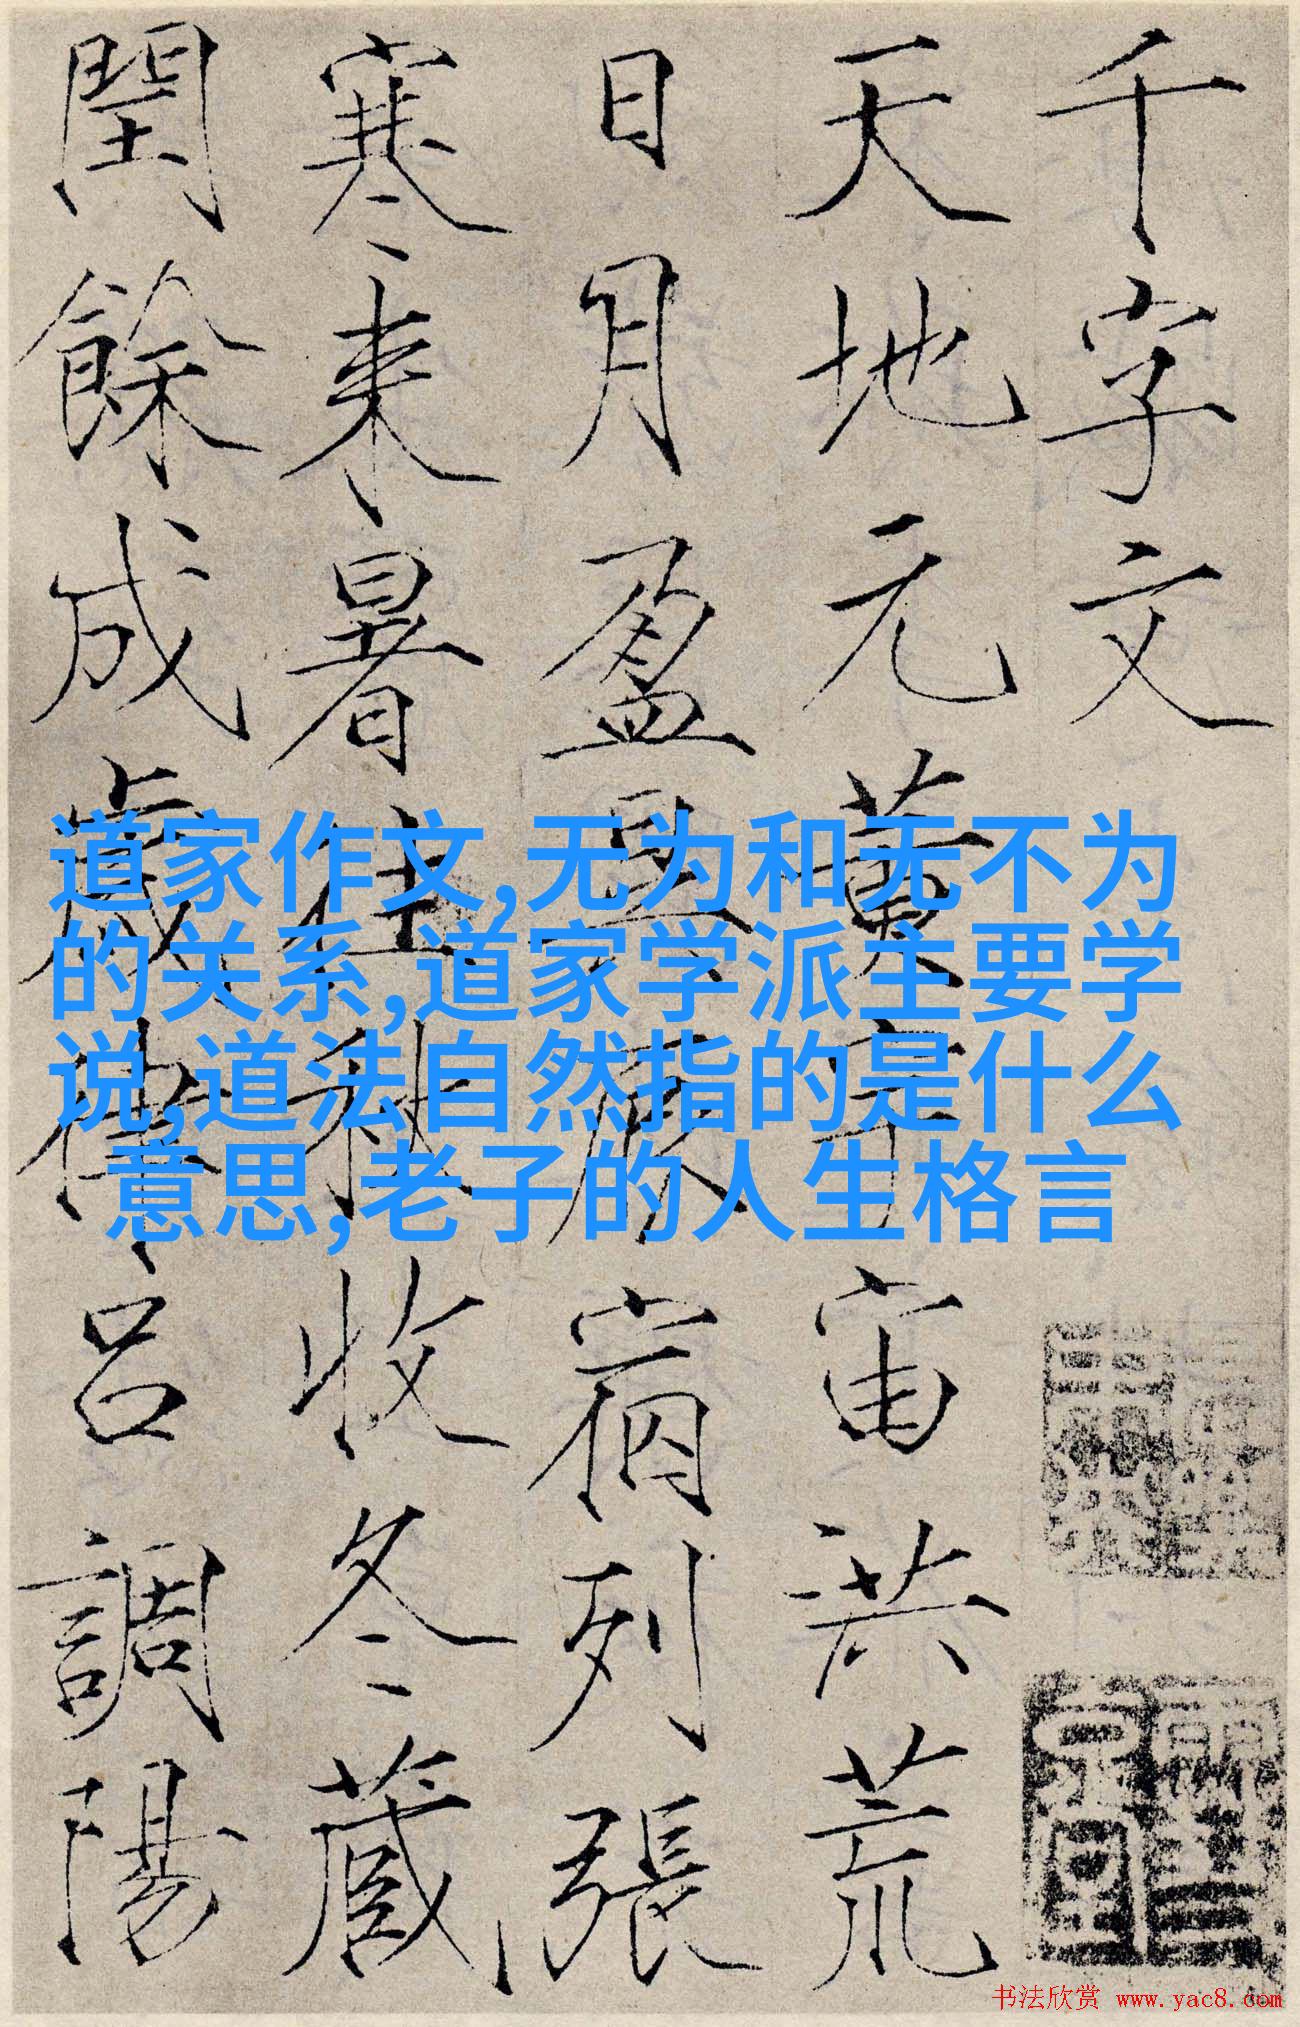 千字文
天地元黃宇宙洪荒
日月盈昃辰宿列張
寒来暑往秋收冬蔵
閏餘成歲律呂調陽
道家作文,无为和无不为
的关系,道家学派主要学
说,道法自然指的是什么
意思,老子的人生格言
书法欣赏 www.yac8.com